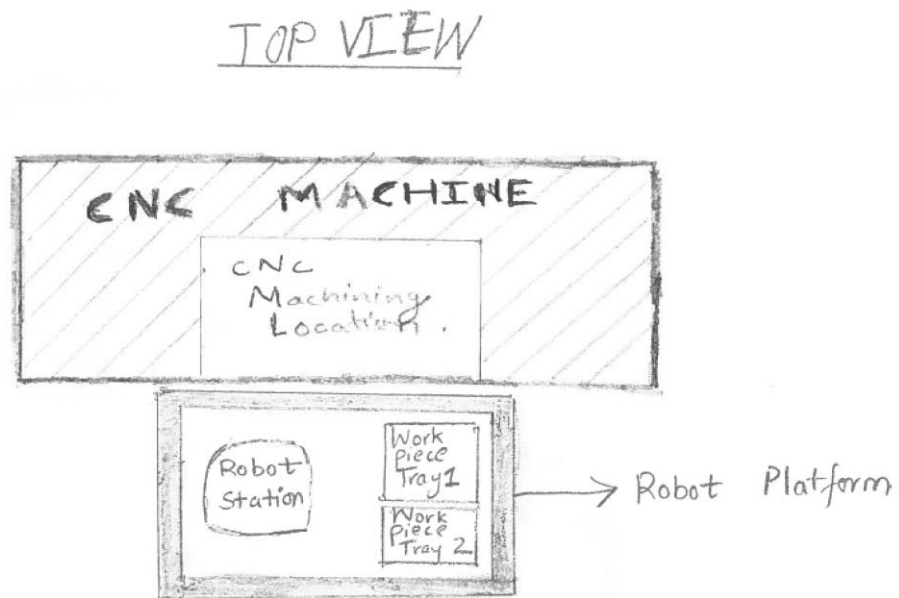 TOP VIEW
CNC MACHINE
CNC
Machining
Location.
Robot
Station
Work
piece
Tray1
Work
piece
Tray 2
Robot Platform